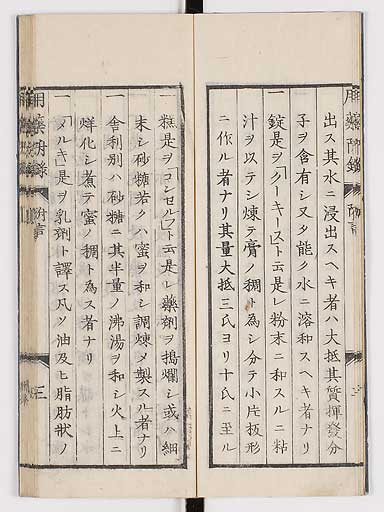 出ス其水ニ浸出スヘキ者ハ大抵其質揮發分
子ヲ含有シ又タ能ク水ニ溶和スヘキ者ナリ
一錠是ヲ「クーキースト云是レ粉末ニ和スルニ粘
汁ヲ以テシ煉テ膏ノ稠ト為シ分テ小片扳形
ニ作ル者ナリ其量大抵三氏ヨリ十氏ニ至ル
用藥附録 附言 三
一糕是ヲ「コンセルト云是レ藥劑ヲ搗爛シ或ハ細
末シ砂糖若クハ蜜ヲ和シ調煉メ製スル者ナリ
一舎利別ハ砂糖ニ其半量ノ沸湯ヲ和シ火上ニ
烊化シ煮テ蜜ノ稠ト為ス者ナリ
一「メルキ」是ヲ乳劑ト譯ス凡ソ油及ヒ脂肪状ノ